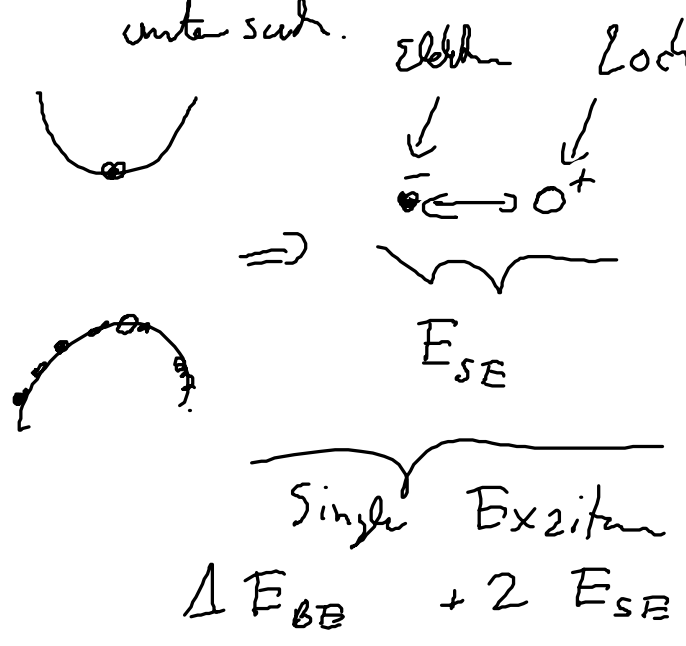 untersuch.
Elektron Loch
- +
⇒
E_SE
Single Exziton
1 E_BE + 2 E_SE